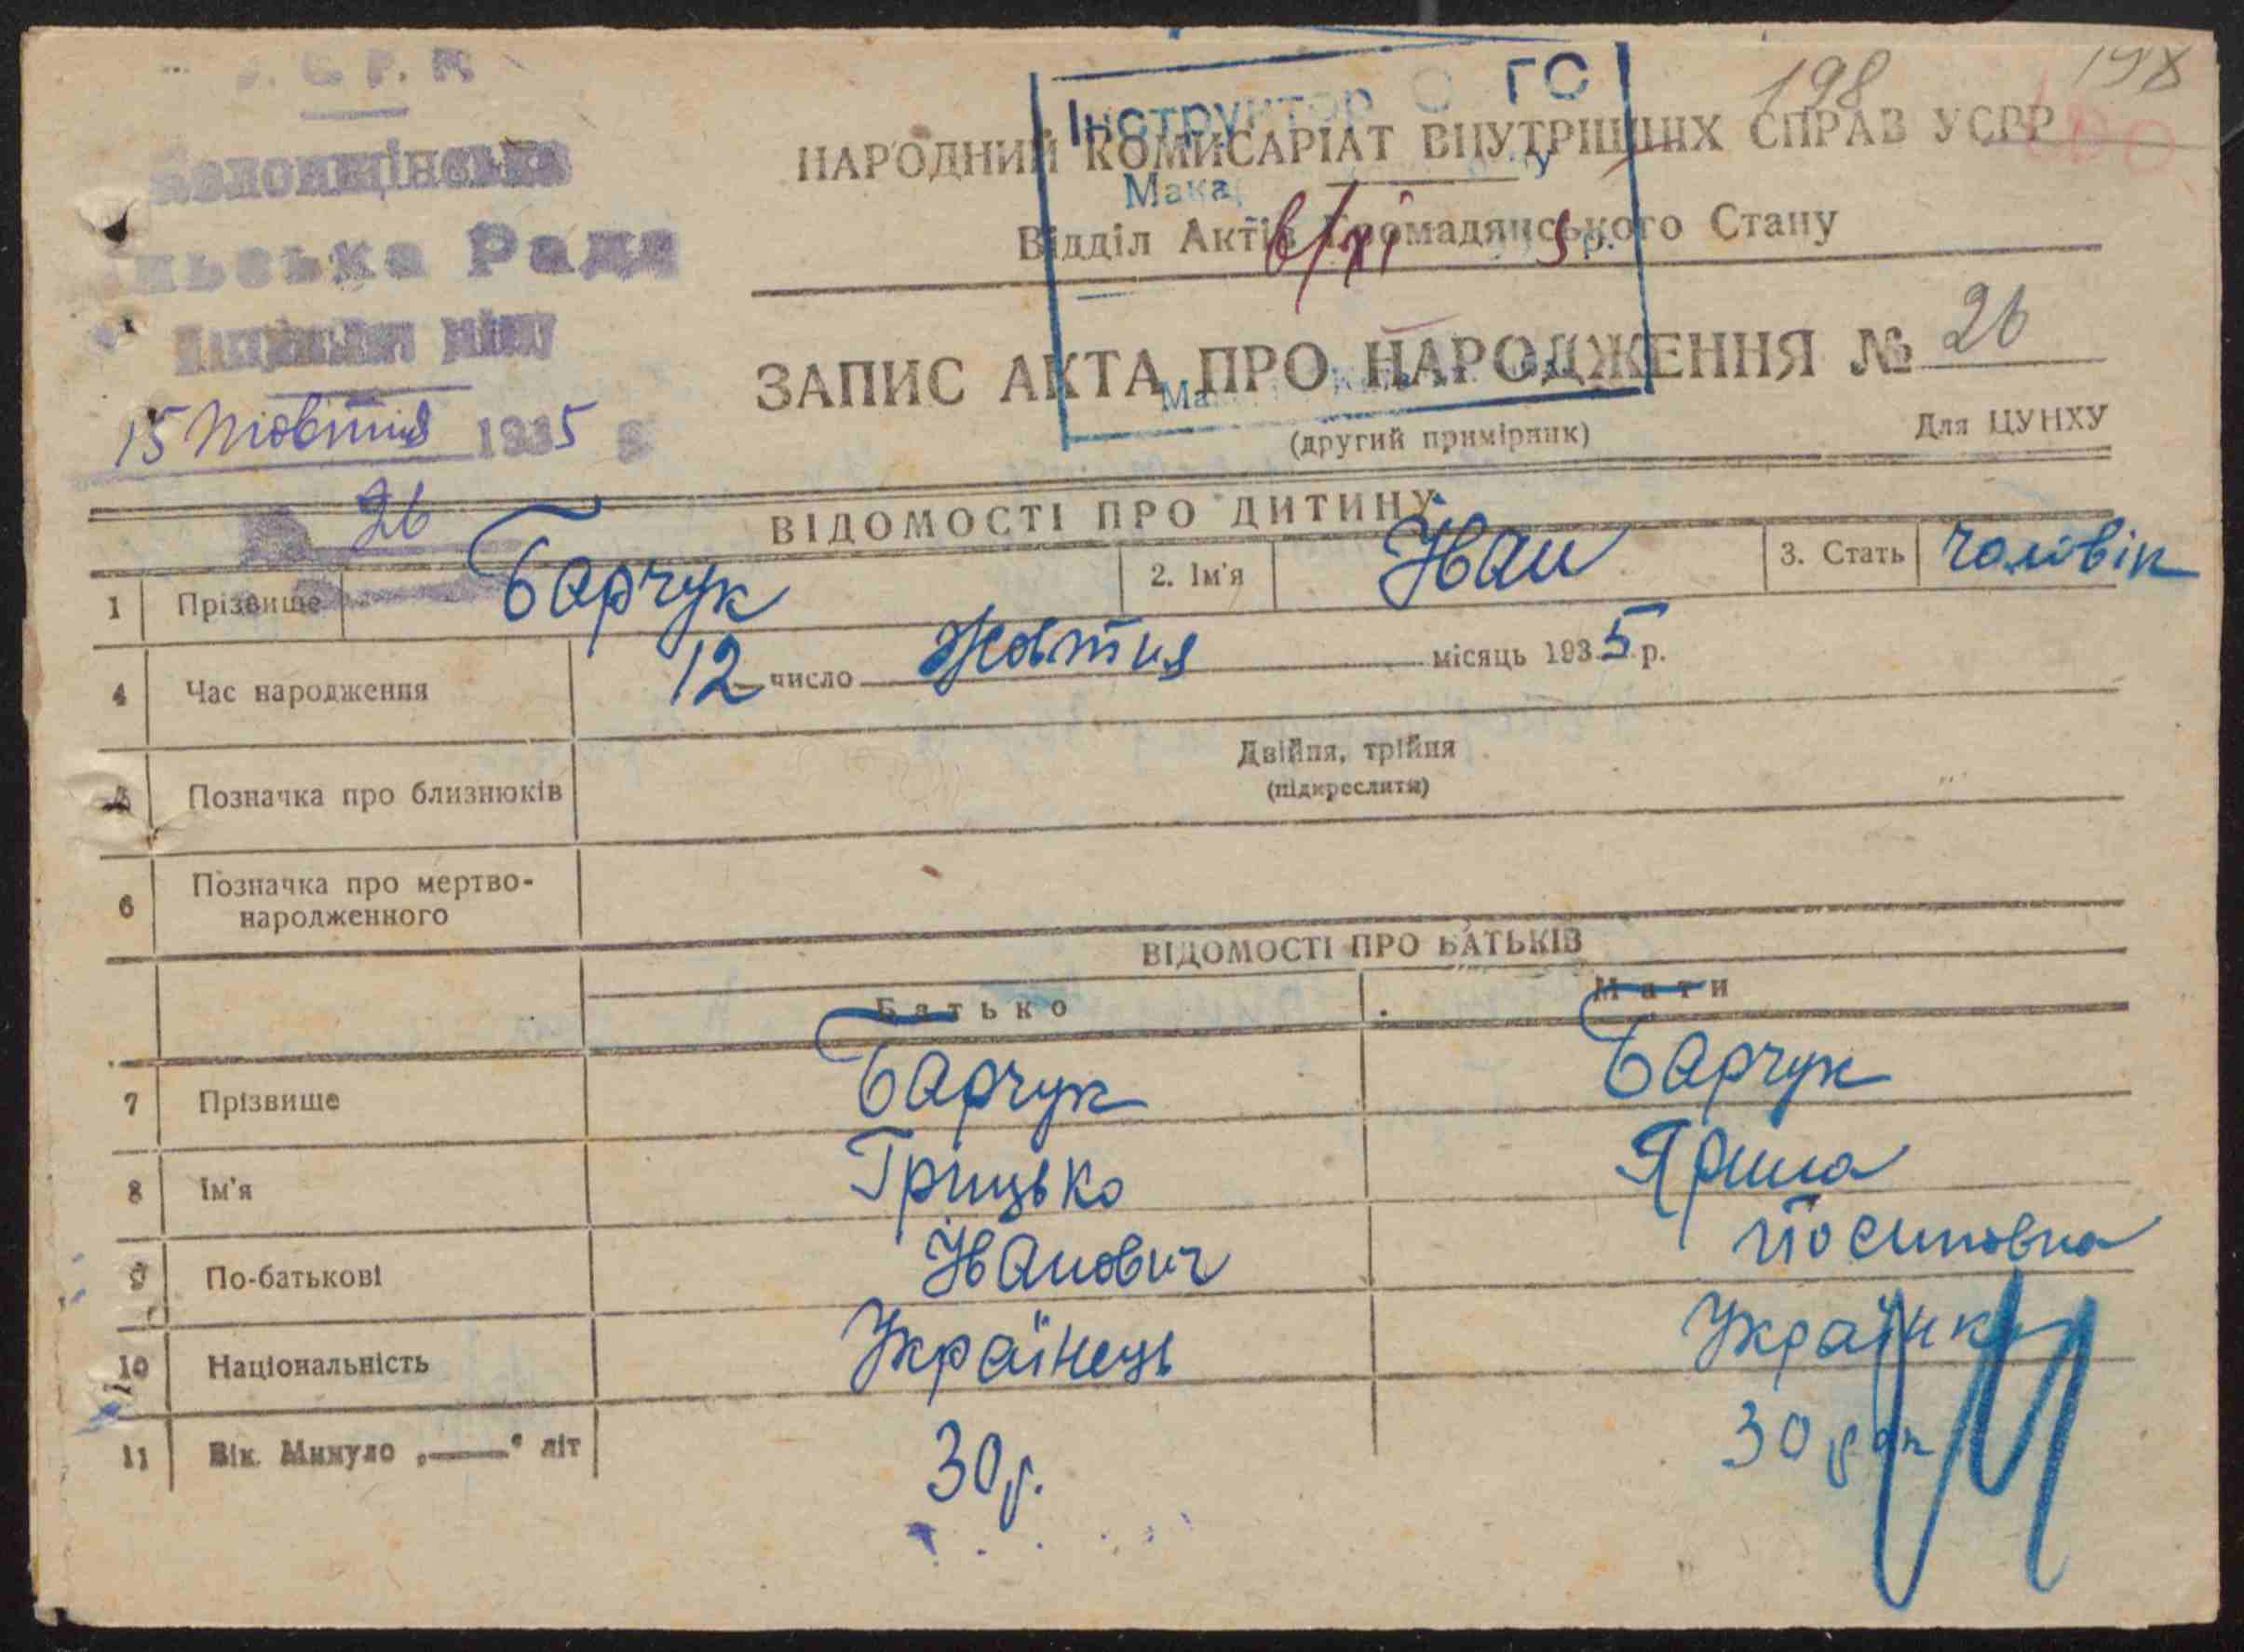 У. С. Р. Р.
Рада
15 Жовтня 1935
26
Інструктор ГС
Мака
6/XI 5 р.
198
198
НАРОДНИЙ КОМІСАРІАТ ВНУТРІШНІХ СПРАВ УСРР
Відділ Актів Громадянського Стану
ЗАПИС АКТА ПРО НАРОДЖЕННЯ № 26
(другий примірник)
Для ЦУНХУ
ВІДОМОСТІ ПРО ДИТИНУ
1 Прізвище Барчук 2. Ім'я Іван 3. Стать чоловік
4 Час народження 12 число Жовтня місяць 1935 р.
5 Позначка про близнюків Двійня, трійня
(підкреслити)
6 Позначка про мертво-
народженного
ВІДОМОСТІ ПРО БАТЬКІВ
Батько Мати
7 Прізвище Барчук Барчук
8 Ім'я Грицько Ярина
9 По-батькові Іванович Йосиповна
10 Національність Українець Українка
11 Вік. Минуло „——“ літ 30 р. 30 рок